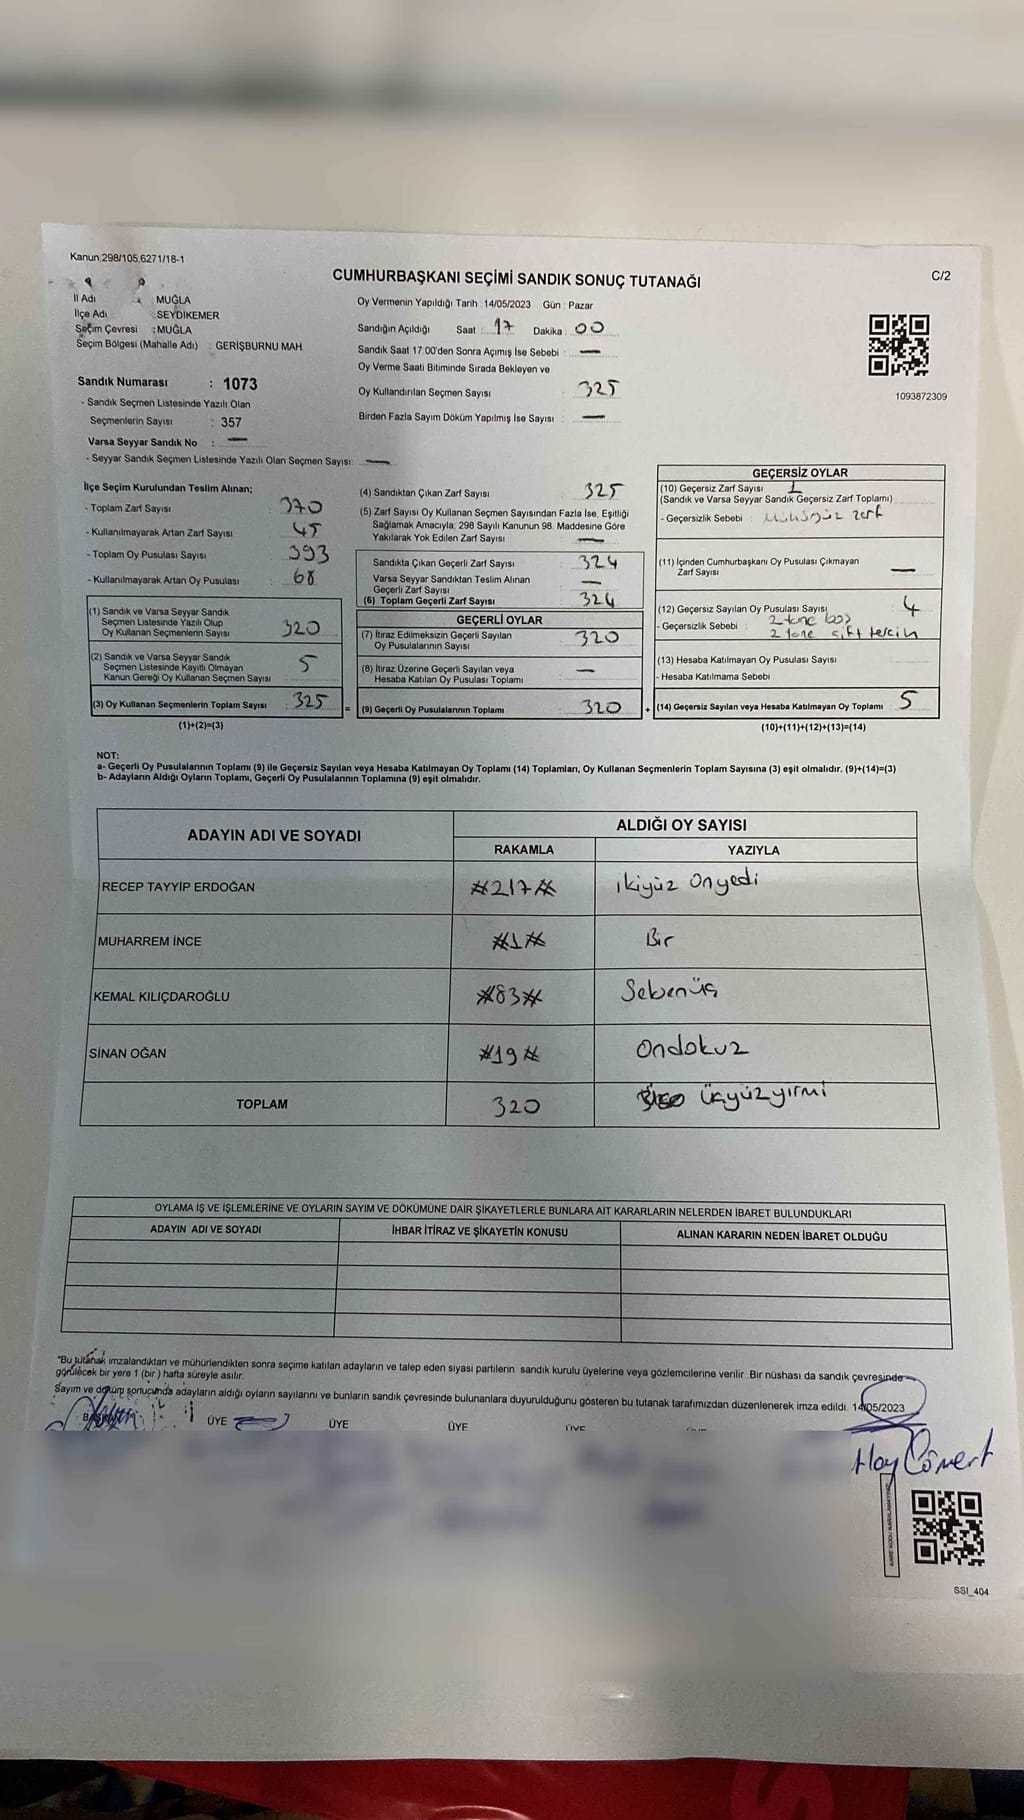 Kanun,298/105,6271/18-1
CUMHURBAŞKANI SEÇİMİ SANDIK SONUÇ TUTANAĞI
C/2
İl Adı MUĞLA
İlçe Adı SEYDİKEMER
Seçim Çevresi : MUĞLA
Seçim Bölgesi (Mahalle Adı) : GERİŞBURNU MAH.
Sandık Numarası : 1073
- Sandık Seçmen Listesinde Yazılı Olan
Seçmenlerin Sayısı : 357
Varsa Seyyar Sandık No : —
- Seyyar Sandık Seçmen Listesinde Yazılı Olan Seçmen Sayısı: —
Oy Vermenin Yapıldığı Tarih : 14/05/2023 Gün : Pazar
Sandığın Açıldığı Saat : 17 Dakika : 00
Sandık Saat 17:00'den Sonra Açımış İse Sebebi : —
Oy Verme Saati Bitiminde Sırada Bekleyen ve
Oy Kullandırılan Seçmen Sayısı : 325
Birden Fazla Sayım Döküm Yapılmış İse Sayısı : —
1093872309
İlçe Seçim Kurulundan Teslim Alınan;
- Toplam Zarf Sayısı : 370
- Kullanılmayarak Artan Zarf Sayısı : 45
- Toplam Oy Pusulası Sayısı : 393
- Kullanılmayarak Artan Oy Pusulası : 68
(1) Sandık ve Varsa Seyyar Sandık
Seçmen Listesinde Yazılı Olup
Oy Kullanan Seçmenlerin Sayısı : 320
(2) Sandık ve Varsa Seyyar Sandık
Seçmen Listesinde Kayıtlı Olmayan
Kanun Gereği Oy Kullanan Seçmen Sayısı : 5
(3) Oy Kullanan Seçmenlerin Toplam Sayısı : 325 =
(1)+(2)=(3)
(4) Sandıktan Çıkan Zarf Sayısı : 325
(5) Zarf Sayısı Oy Kullanan Seçmen Sayısından Fazla İse, Eşitliği
Sağlamak Amacıyla; 298 Sayılı Kanunun 98. Maddesine Göre
Yakılarak Yok Edilen Zarf Sayısı : —
Sandıkta Çıkan Geçerli Zarf Sayısı : 324
Varsa Seyyar Sandıktan Teslim Alınan
Geçerli Zarf Sayısı : —
(6) Toplam Geçerli Zarf Sayısı : 324
GEÇERLİ OYLAR
(7) İtiraz Edilmeksizin Geçerli Sayılan
Oy Pusulalarının Sayısı : 320
(8) İtiraz Üzerine Geçerli Sayılan veya
Hesaba Katılan Oy Pusulası Toplamı : —
(9) Geçerli Oy Pusulalarının Toplamı : 320 +
GEÇERSİZ OYLAR
(10) Geçersiz Zarf Sayısı : 1
(Sandık ve Varsa Seyyar Sandık Geçersiz Zarf Toplamı)
- Geçersizlik Sebebi : Mühürsüz zarf
(11) İçinden Cumhurbaşkanı Oy Pusulası Çıkmayan
Zarf Sayısı : —
(12) Geçersiz Sayılan Oy Pusulası Sayısı : 4
- Geçersizlik Sebebi : 2 tane boş
2 tane çift tercih
(13) Hesaba Katılmayan Oy Pusulası Sayısı :
- Hesaba Katılmama Sebebi :
(14) Geçersiz Sayılan veya Hesaba Katılmayan Oy Toplamı : 5
(10)+(11)+(12)+(13)=(14)
NOT:
a- Geçerli Oy Pusulalarının Toplamı (9) ile Geçersiz Sayılan veya Hesaba Katılmayan Oy Toplamı (14) Toplamları, Oy Kullanan Seçmenlerin Toplam Sayısına (3) eşit olmalıdır. (9)+(14)=(3)
b- Adayların Aldığı Oyların Toplamı, Geçerli Oy Pusulalarının Toplamına (9) eşit olmalıdır.
ADAYIN ADI VE SOYADI
ALDIĞI OY SAYISI
RAKAMLA YAZIYLA
RECEP TAYYİP ERDOĞAN #217# ikiyüz Onyedi
MUHARREM İNCE #1# Bir
KEMAL KILIÇDAROĞLU #83# Seksenüç
SİNAN OĞAN #19# Ondokuz
TOPLAM 320 üçyüzyirmi
OYLAMA İŞ VE İŞLEMLERİNE VE OYLARIN SAYIM VE DÖKÜMÜNE DAİR ŞİKAYETLERLE BUNLARA AİT KARARLARIN NELERDEN İBARET BULUNDUKLARI
ADAYIN ADI VE SOYADI İHBAR İTİRAZ VE ŞİKAYETİN KONUSU ALINAN KARARIN NEDEN İBARET OLDUĞU
"Bu tutanak imzalandıktan ve mühürlendikten sonra seçime katılan adayların ve talep eden siyasi partilerin sandık kurulu üyelerine veya gözlemcilerine verilir. Bir nüshası da sandık çevresinde
görülecek bir yere 1 (bir) hafta süreyle asılır.
Sayım ve döküm sonucunda adayların aldığı oyların sayılarını ve bunların sandık çevresinde bulunanlara duyurulduğunu gösteren bu tutanak tarafımızdan düzenlenerek imza edildi. 14/05/2023
ÜYE ÜYE ÜYE ÜYE
SSI_404